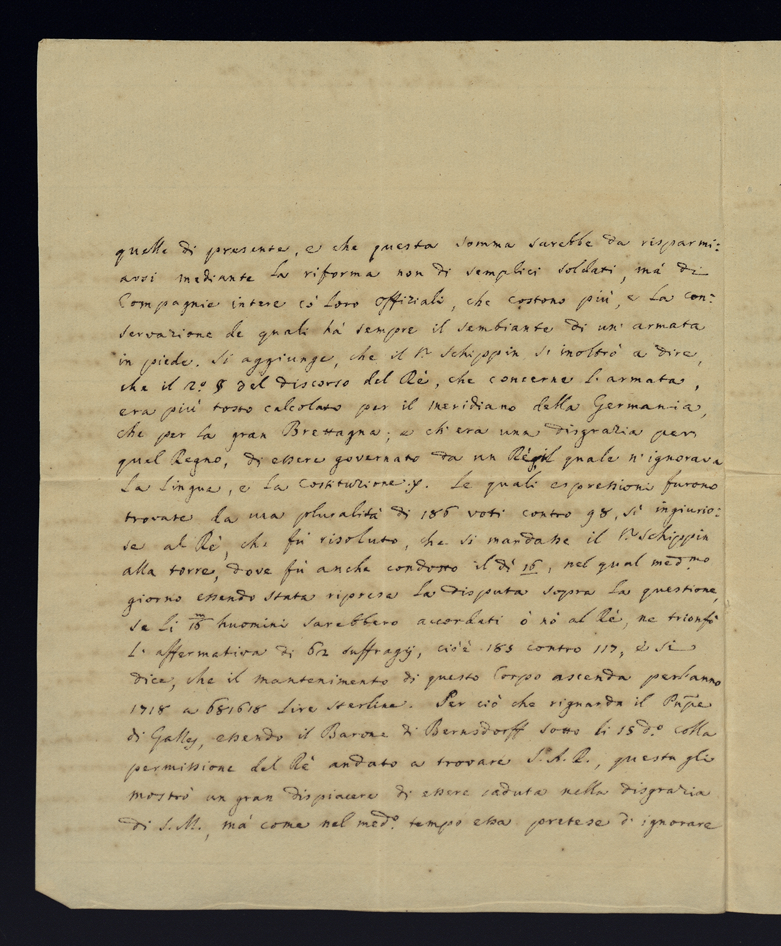 quelle di presente, e che questa somma sarebbe da risparmi:
arsi mediante la riforma non di semplici soldati, mà di
Compagnie intere cò loro Offiziali, che costono più, e la con:
servazione de quali hà sempre il sembiante di un' armata
in piede. Si aggiunge, che il Sr. Schippin s' inoltrò a dire,
che il 2º § del discorso del Rè, che concerne l' armata,
era più tosto calcolato per il meridiano della Germania,
che per la gran Brettagna; e ch' era una disgrazia per
quel Regno, di essere governato da un Rè, il quale n' ignorava
la Lingua, e la Costituzione. Le quali espressioni furono
trovate da una pluralità di 186 voti contro 98, sì ingiurio:
se al Rè, che fù risoluto, che si mandasse il Sr. Schippin
alla torre, dove fù anche condotto il dì 16, nel qual medmo
giorno essendo stata ripresa la disputa sopra la questione,
se li 16/m huomini sarebbero accordati ò nò al Rè, ne trionfò
l' affermativa di 62 suffragij, cioè 183 contro 117, è si
dice, che il mantenimento di questo Corpo ascenda per l' anno
1718 a 681618 Lire sterline. Per ciò che riguarda il Pnpe
di Galles, essendo il Barone di Bernsdorff sotto li 15 do. colla
permissione del Rè andato a trovare S.A.R., questa gli
mostrò un gran dispiacere di essere caduta nella disgrazia
di S.M., mà come nel medo. tempo essa pretese d' ignorare